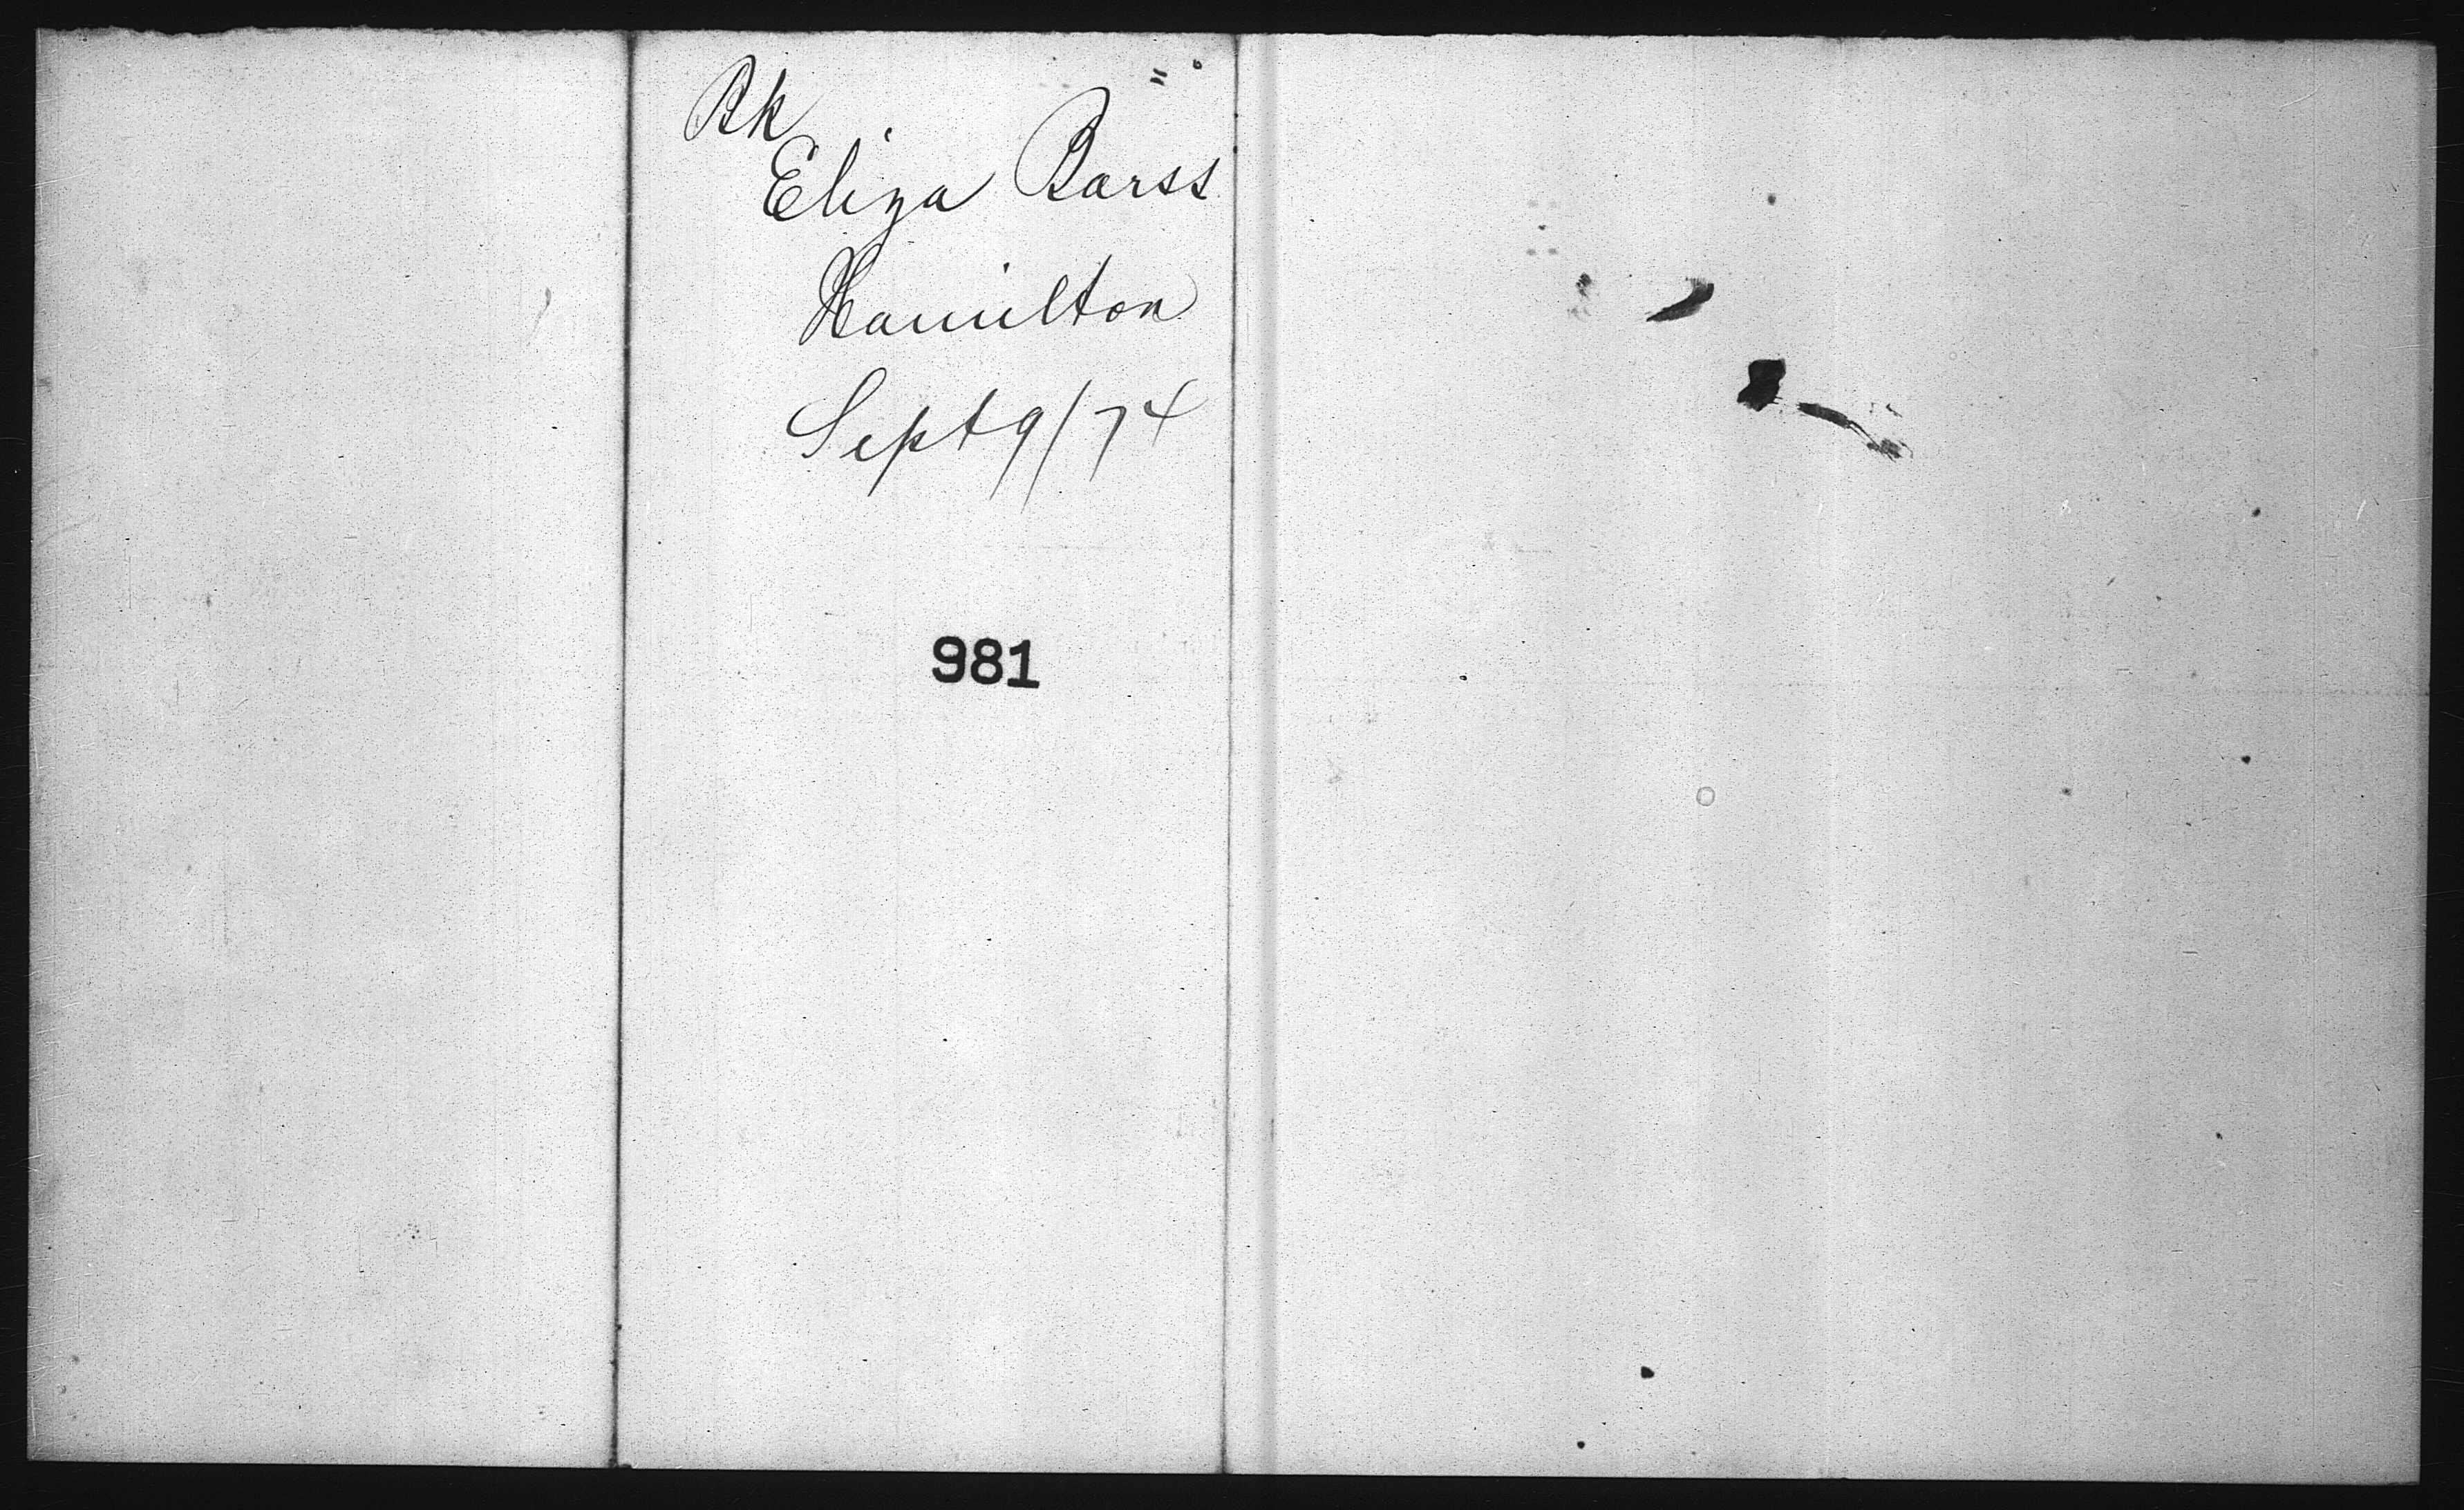 Bk
Eliza Barss
Hamilton
Sept 9/74
981